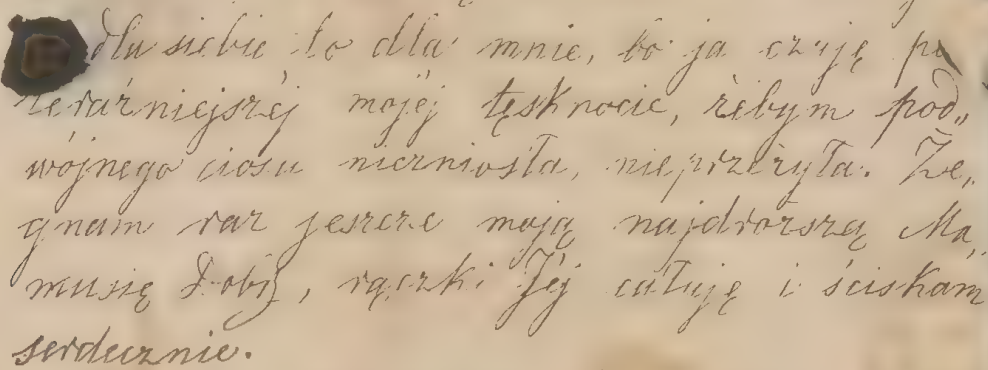 dla siebie to dla mnie, bo ja czuję po
teraźniejszéj mojéj tęsknocie, żebym pod„
wójnego ciosu niezniosła, nieprzeżyła. Że„
gnam raz jeszcze moją najdroższą Ma„
musię Dobrą, rączki Jéj całuję i ściskam
serdecznie.